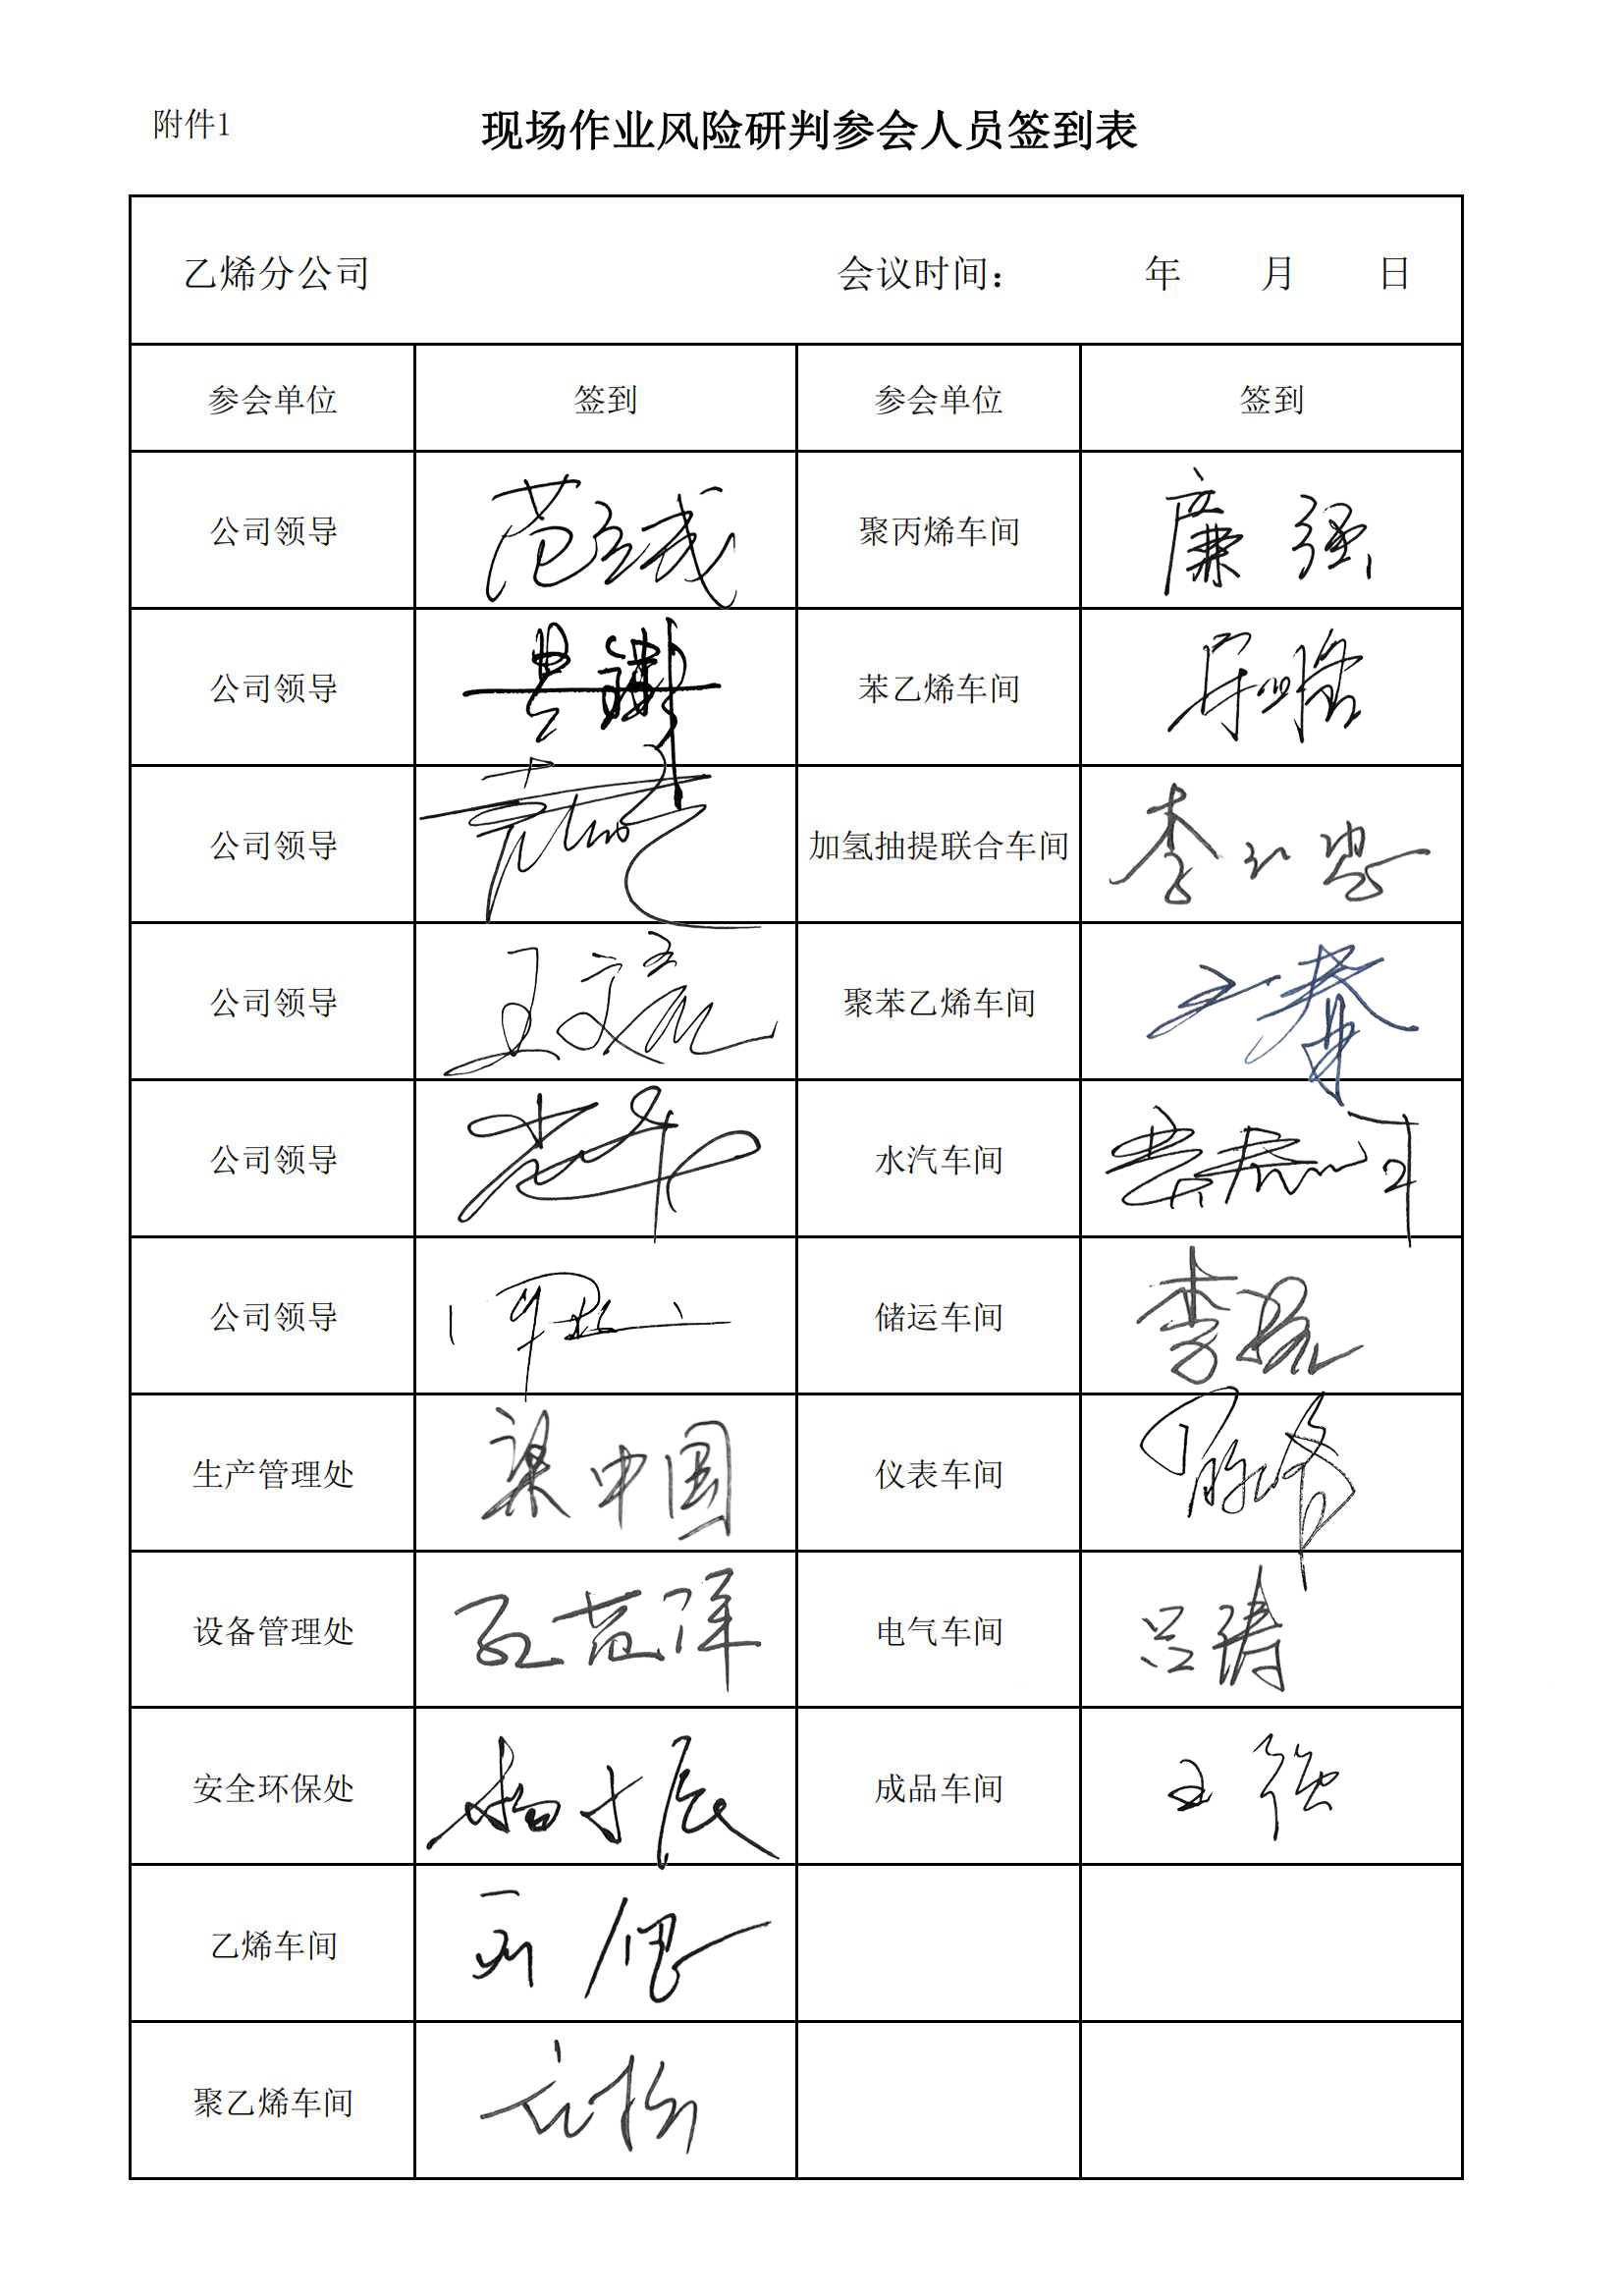 附件1
现场作业风险研判参会人员签到表
乙烯分公司 会议时间： 年 月 日
参会单位 签到 参会单位 签到
公司领导 聚丙烯车间 廉强
公司领导 苯乙烯车间
公司领导 加氢抽提联合车间 李
公司领导 王文 聚苯乙烯车间
公司领导 水汽车间
公司领导 储运车间 李振
生产管理处 梁中国 仪表车间
设备管理处 孔范洋 电气车间 吕涛
安全环保处 杨才辰 成品车间 王强
乙烯车间
聚乙烯车间